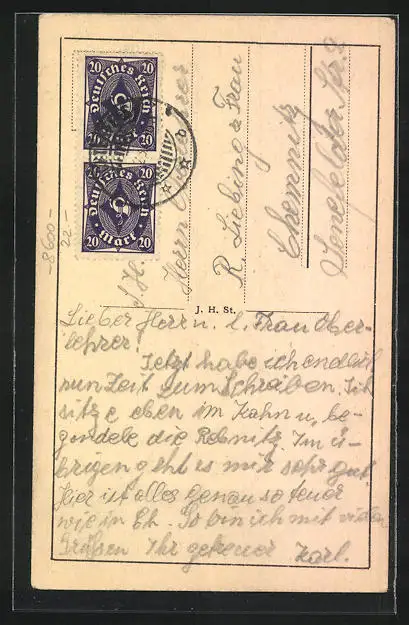 20 20
Deutsches Reich
20 20
20 20
Deutsches Reich
20 Mark 20
8600-
22.-
S. H.
Herrn Oberlehrer
R. Liebing & Frau
Chemnitz
Senefelder Str. 9
J. H. St.
Lieber Herrn u. l. Frau Ober-
lehrer!
Jetzt habe ich endlich
nun Zeit zum Schreiben. Ich
sitze eben im Kahn u. be-
gondele die Rebnitz. Im ü-
brigen geht es mir sehr gut.
Hier ist alles genau so teuer
wie in Ch. So bin ich mit vielen
Grüßen Ihr getreuer Karl.